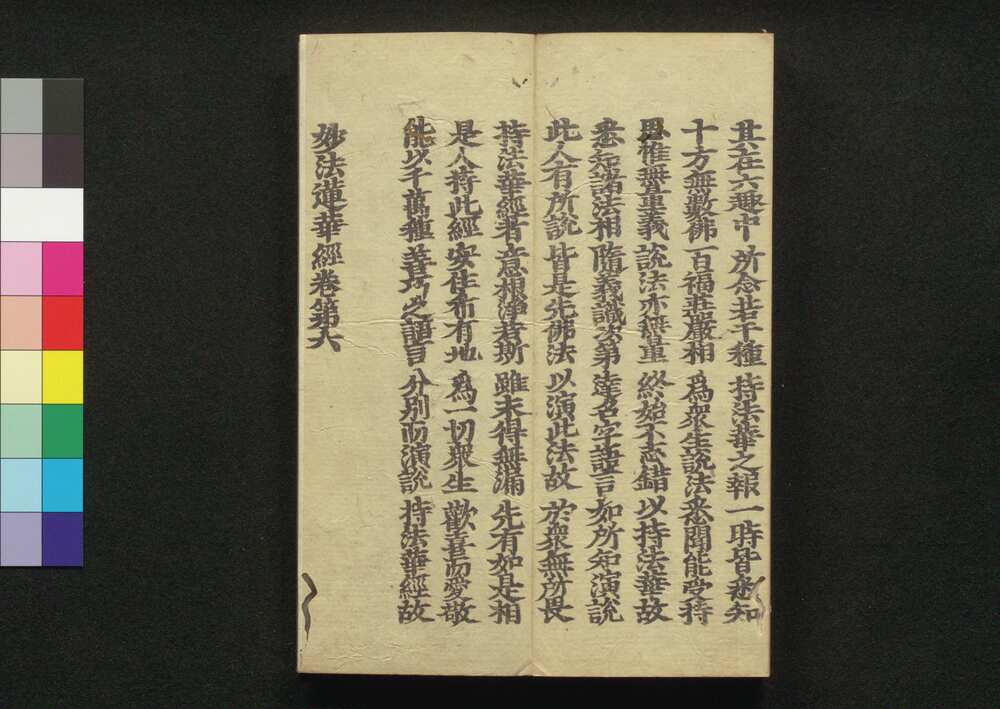 其在六趣中 所念若干種 持法華之報 一時皆悉知
十方無數佛 百福莊嚴相 爲衆生說法 悉聞能受持
思惟無量義 說法亦無量 終始不忘錯 以持法華故
悉知諸法相 隨義識次第 達名字語言 如所知演說
此人有所說 皆是先佛法 以演此法故 於衆無所畏
持法華經者 意根淨若斯 雖未得無漏 先有如是相
是人持此經 安住希有地 爲一切衆生 歡喜而愛敬
能以千萬種 善巧之語言 分別而演說 持法華經故
妙法蓮華經卷第六